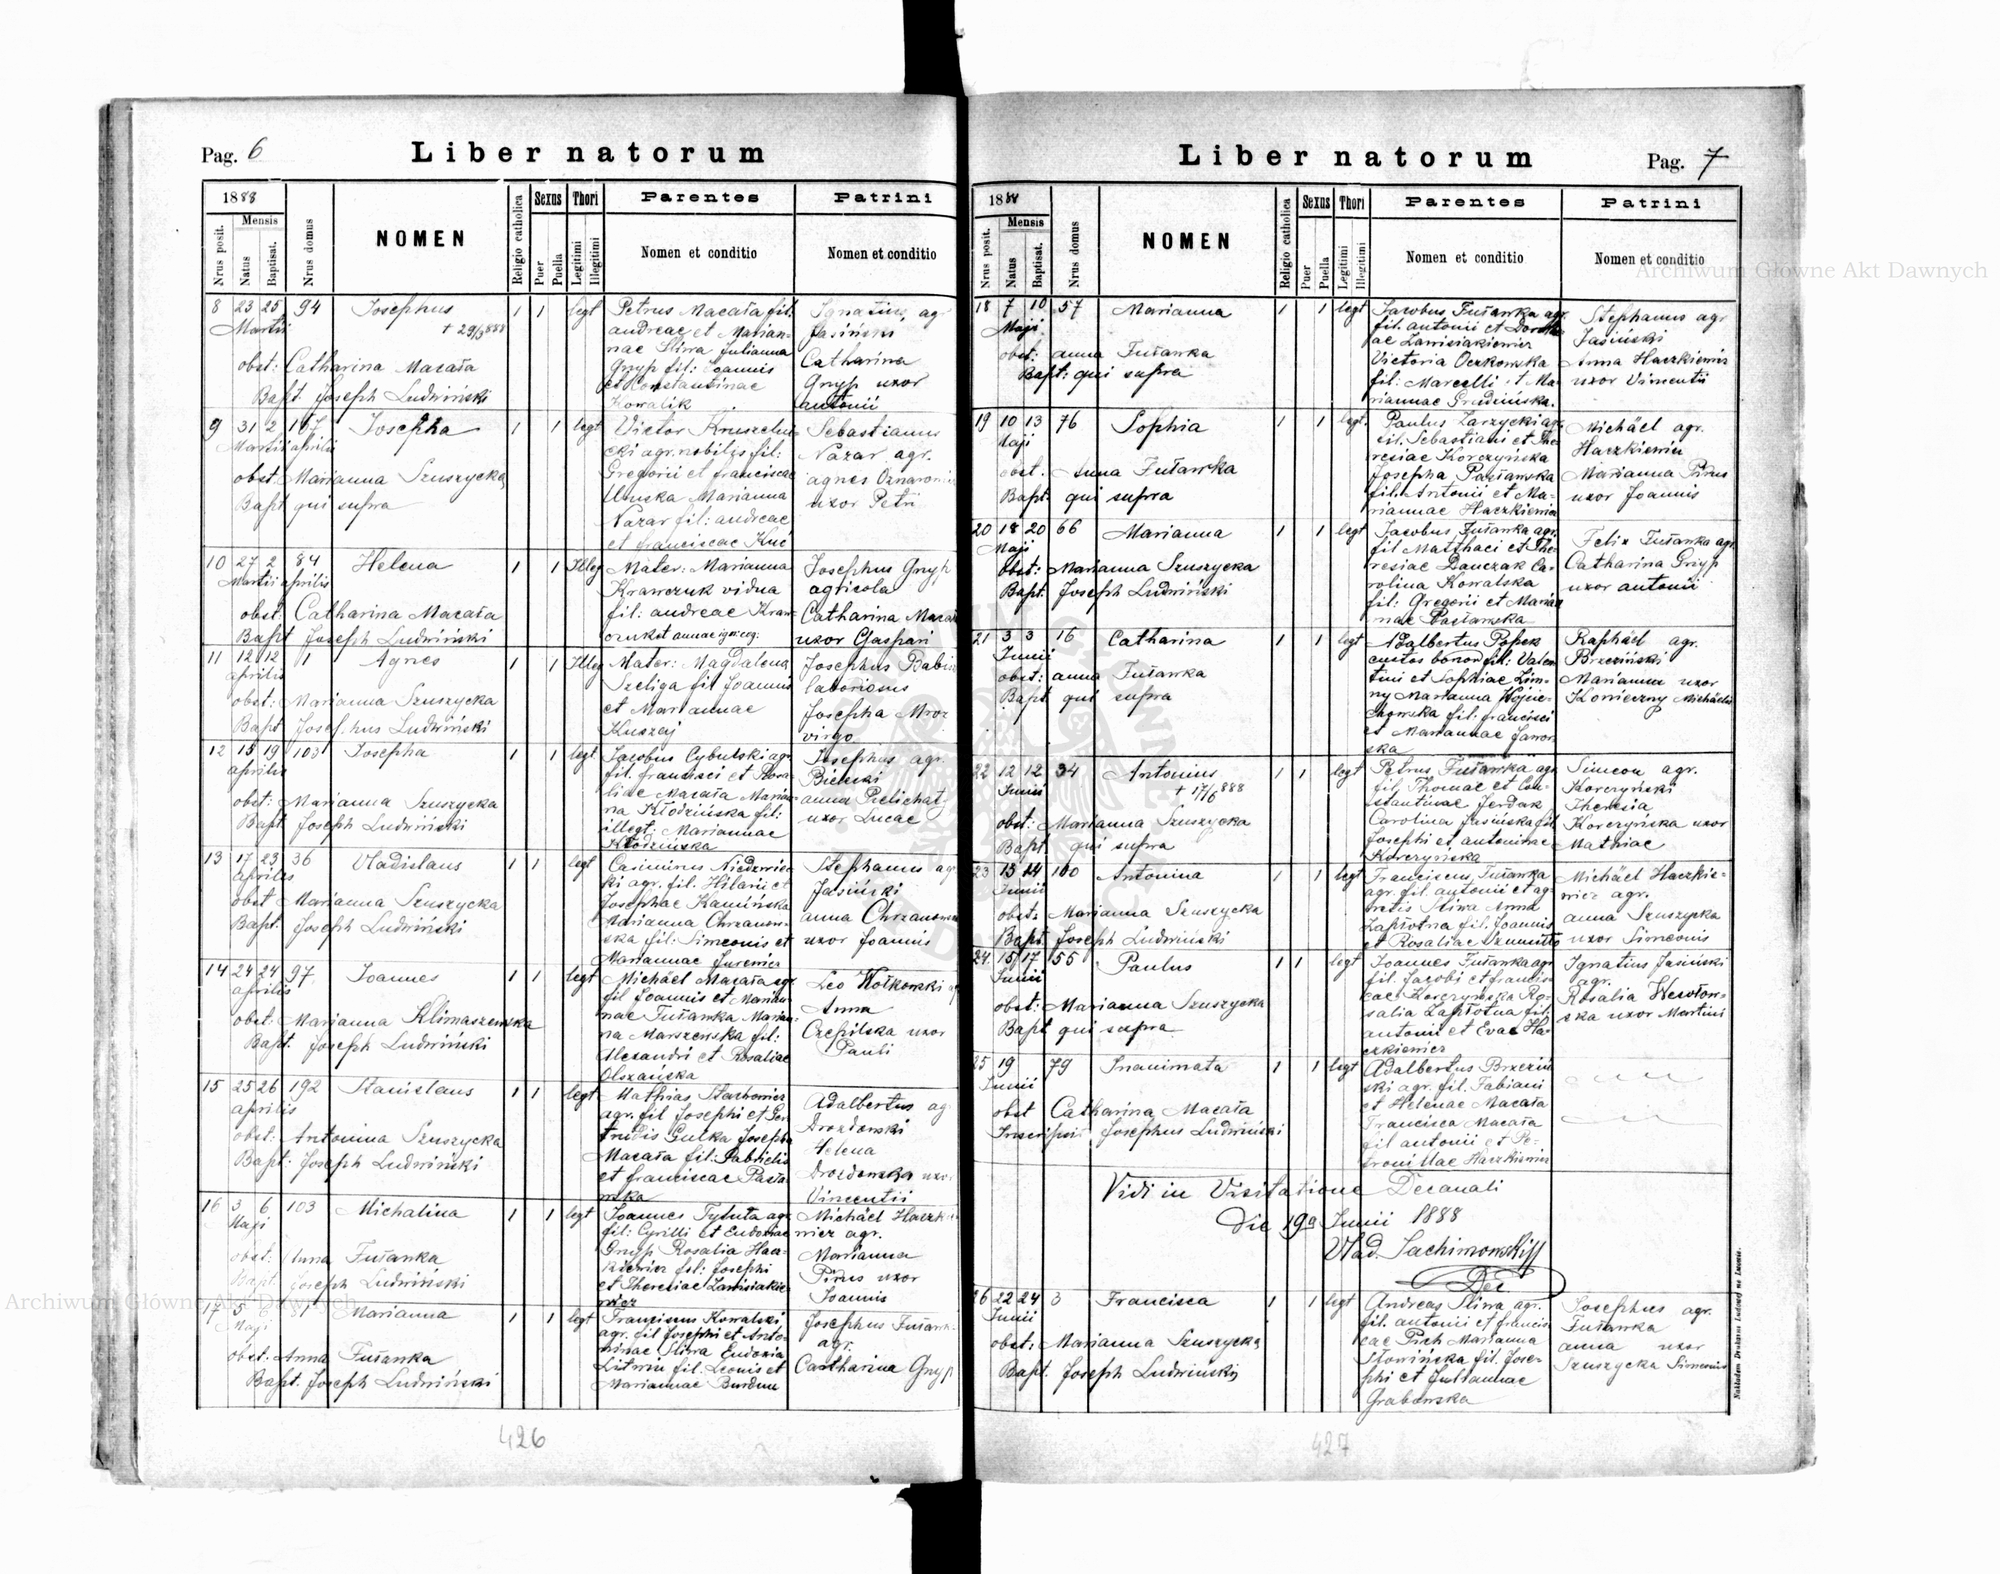 Pag. 6
Liber natorum
1888
Mensis
Nrus posit.
Natus
Baptisat.
Nrus domus
NOMEN
Religio catholica
Sexus
Puer
Puella
Thori
Legitimi
Illegitimi
Parentes
Nomen et conditio
Patrini
Nomen et conditio
8 23 25 94 Josephus 1 1 legt
Martii + 29/3 888
obst: Catharina Macała
Bapt Joseph Ludwiński
Petrus Macała fil:
andreae et Marian-
nae Sliwa Julianna
Gnyp fil: Joannis
et Konstantinae
Kowalik
Ignatius agr
Jasiński
Catharina
Gnyp uxor
antonii
9 31 2 107 Josepha 1 1 legt
Martii aprilis
obst: Marianna Szuszycka
Bapt qui supra
Victor Kruszelni-
cki agr. nobilis fil:
Gregorii et franciscae
Marianna
Nazar fil: andreae
et franciscae Kuć
Sebastianus
Nazar agr.
agnes
uxor Petri
10 27 2 84 Helena 1 1 Illeg
Martii aprilis
obst: Catharina Macała
Bapt Joseph Ludwiński
Mater: Marianna
Krawczuk vidua
fil: andreae Kraw-
czuk et annae
Josephus Gnyp
agricola
Catharina Macała
uxor Gaspari
11 12 12 1 Agnes 1 1 Illeg
aprilis
obst: Marianna Szuszycka
Bapt Josephus Ludwiński
Mater: Magdalena
Szeliga fil Joannis
et Mariannae
Kuszaj
Josephus Babin
laboriosus
Josepha Mroz
virgo
12 15 19 103 Josepha 1 1 legt
aprilis
obst: Marianna Szuszycka
Bapt Joseph Ludwiński
Jacobus Cybulski agr
fil. francisci et Rosa-
liae Macała Marian-
na Kłodzińska fil:
illegt: Mariannae
Kłodzińska
Josephus agr.
Bielecki
anna Pelichaty
uxor Lucae
13 17 23 36 Vladislaus 1 1 legt
aprilis
obst Marianna Szuszycka
Bapt. Joseph Ludwiński
Casimirus Niedzwiec-
ki agr. fil. Hilarii et
Josephae Kamińska
Marianna Chrzanow-
ska fil: Simeonis et
Mariannae Jurewicz
Stephanus agr
Jasiński
anna Chrzanowska
uxor Joannis
14 24 24 97 Joannes 1 1 legt
aprilis
obst: Marianna Klimaszewska
Bapt. Joseph Ludwiński
Michäel Macała agr
fil Joannis et Marian-
nae Fuławka Marian-
na Marszewska fil:
Alexandri et Rosaliae
Olszańska
Leo Wołkowski agr
Anna
Czepilska uxor
Pauli
15 25 26 192 Stanislaus 1 1 legt
aprilis
obst: Antonina Szuszycka
Bapt: Joseph Ludwiński
Mathias Stachowicz
agr. fil Josephi et Ger-
trudis Gulka Josepha
Macała fil: Gabrielis
et franciscae Pasła-
wska
Adalbertus agr
Drozdowski
Helena
Drozdowska uxor
Vincentii
16 3 6 103 Michalina 1 1 legt
Maji
obst: Anna Fuławka
Bapt Joseph Ludwiński
Joannes Tybuła agr
fil: Cyrilli et Eudoxiae
Gnyp Rosalia Hacz-
kiewicz fil: Josephi
et Theresiae Lawisiakie-
wicz
Michäel Haczkie-
wicz agr.
Marianna
Pirus uxor
Joannis
17 5 6 87 Marianna 1 1 legt
Maji
obst: Anna Fuławka
Bapt. Joseph Ludwiński
Franciscus Kowalski
agr. fil Josephi et Anto-
ninae Sliwa Eudoxia
Litwin fil. Leonis et
Mariannae Burdun
Josephus Fuławka
agr.
Catharina Gnyp
426
Liber natorum
Pag. 7
1888
Mensis
Nrus posit.
Natus
Baptisat.
Nrus domus
NOMEN
Religio catholica
Sexus
Puer
Puella
Thori
Legitimi
Illegitimi
Parentes
Nomen et conditio
Patrini
Nomen et conditio
18 7 10 57 Marianna 1 1 legt
Maji
obst: anna Fuławka
Bapt: qui supra
Jacobus Fuławka agr
fil. antonii et Dorothe-
ae Lawisiakiewicz
Victoria Oczkowska
fil: Marcelli et Ma-
riannae Grudzińska.
Stephanus agr
Jasiński
Anna Haczkiewicz
uxor Vincentii
19 10 13 76 Sophia 1 1 legt.
Maji
obst. Anna Fuławka
Bapt qui supra
Paulus Zarzycki agr
fil. Sebastiani et The-
resiae Korczyńska
Josepha Pasławska
fil. Antonii et Ma-
riannae Haczkiewicz
Michäel agr.
Haczkiewicz
Marianna Pirus
uxor Joannis
20 18 20 66 Marianna 1 1 legt
Maji
obst: Marianna Szuszycka
Bapt. Joseph Ludwiński
Jacobus Fuławka agr.
fil Matthaei et The-
resiae Danczak Ca-
rolina Kowalska
fil: Gregorii et Marian-
nae Pasławska
Felix Fuławka agr.
Catharina Gnyp
uxor antonii
21 3 3 16 Catharina 1 1 legt
Junii
obst: anna Fuławka
Bapt qui supra
Adalbertus Popek
custos bonor fil: Valen-
tini et Sophiae Zim-
ny Marianna Wojcie-
chowska fil: francisci
et Mariannae Jawor-
ska
Raphäel agr.
Brzeziński
Marianna uxor
Konieczny Michäelis
22 12 12 34 Antonius 1 1 legt
Junii + 17/6 888
obst: Marianna Szuszycka
Bapt. qui supra
Petrus Fuławka agr
fil. Thomae et Con-
stantinae Jerdak
Carolina Jasińska fil
Josephi et antoninae
Korczyńska
Simeon agr.
Korczyński
Theresia
Korczyńska uxor
Mathiae
23 13 14 100 Antonina 1 1 legt
Junii
obst: Marianna Szuszycka
Bapt. Joseph Ludwiński
Franciscus Fuławka
agr. fil. antonii et ag-
netis Sliwa Anna
Zapłotna fil. Joannis
et Rosaliae
Michäel Haczkie-
wicz agr.
anna Szuszycka
uxor Simeonis
24 15 17 55 Paulus 1 1 legt
Junii
obst: Marianna Szuszycka
Bapt qui supra
Joannes Fuławka agr
fil. Jacobi et francis-
cae Korczyńska Ro-
salia Zapłotna fil.
antonii et Evae Ha-
czkiewicz
Ignatius Jasiński
agr.
Rosalia Wesołow-
ska uxor Martini
25 19 79 Inanimata 1 1 legt
Junii
obst Catharina Macała
Inscripsi Josephus Ludwiński
Adalbertus Brzeziń-
ski agr. fil. Fabiani
et Helenae Macała
Francisca Macała
fil antonii et Pe-
tronillae Haczkiewicz
Vidi in Visitatione Decanali
Die 19a Junii 1888
Vlad. Sachimowski
Dec
26 22 24 3 Francisca 1 1 legt
Junii
obst: Marianna Szuszycka
Bapt. Joseph Ludwiński
Andreas Sliwa agr.
fil. antonii et francis-
cae Pich Marianna
Słowińska fil. Jose-
phi et Juliannae
Grabowska
Josephus agr.
Fuławka
anna uxor
Szuszycka Simeonis
Nakładem Drukarni Ludowej we Lwowie.
427
Archiwum Główne Akt Dawnych
Archiwum Główne Akt Dawnych